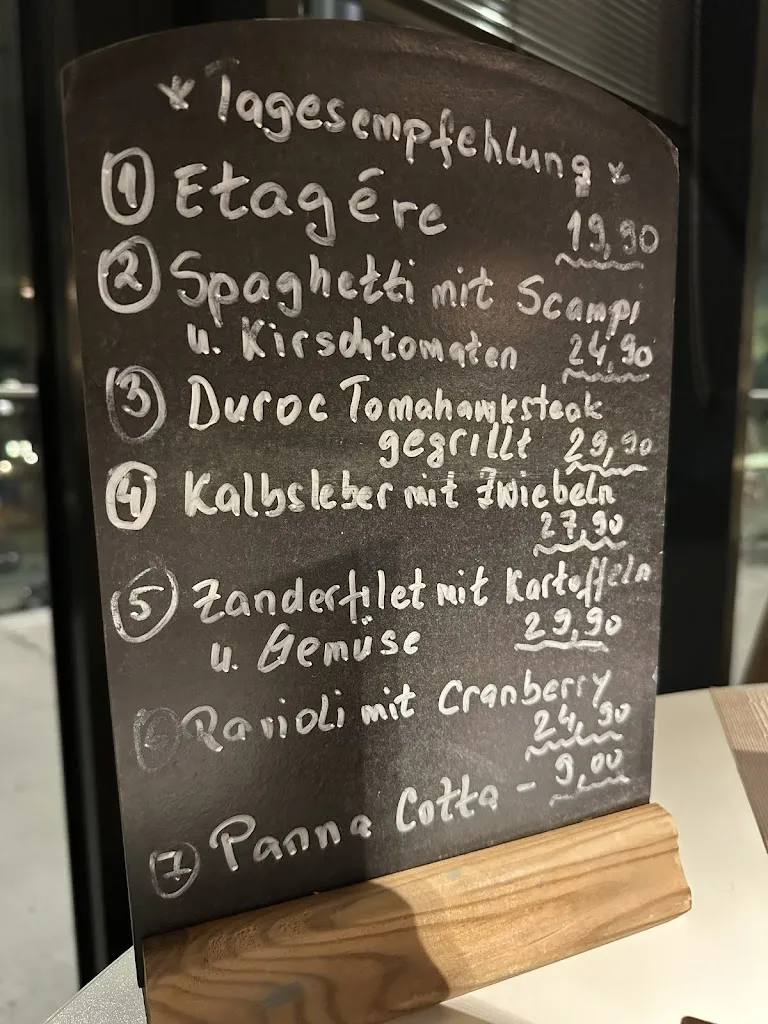 * Tagesempfehlung *
1 Etagére
19,90
2 Spaghetti mit Scampi
u. Kirschtomaten 24,90
3 Duroc Tomahawksteak
gegrillt 29,90
4 Kalbsleber mit Zwiebeln
27,90
5 Zanderfilet mit Kartoffeln
u. Gemüse 29,90
6 Ravioli mit Cranberry
24,90
7 Panna Cotta - 9,00